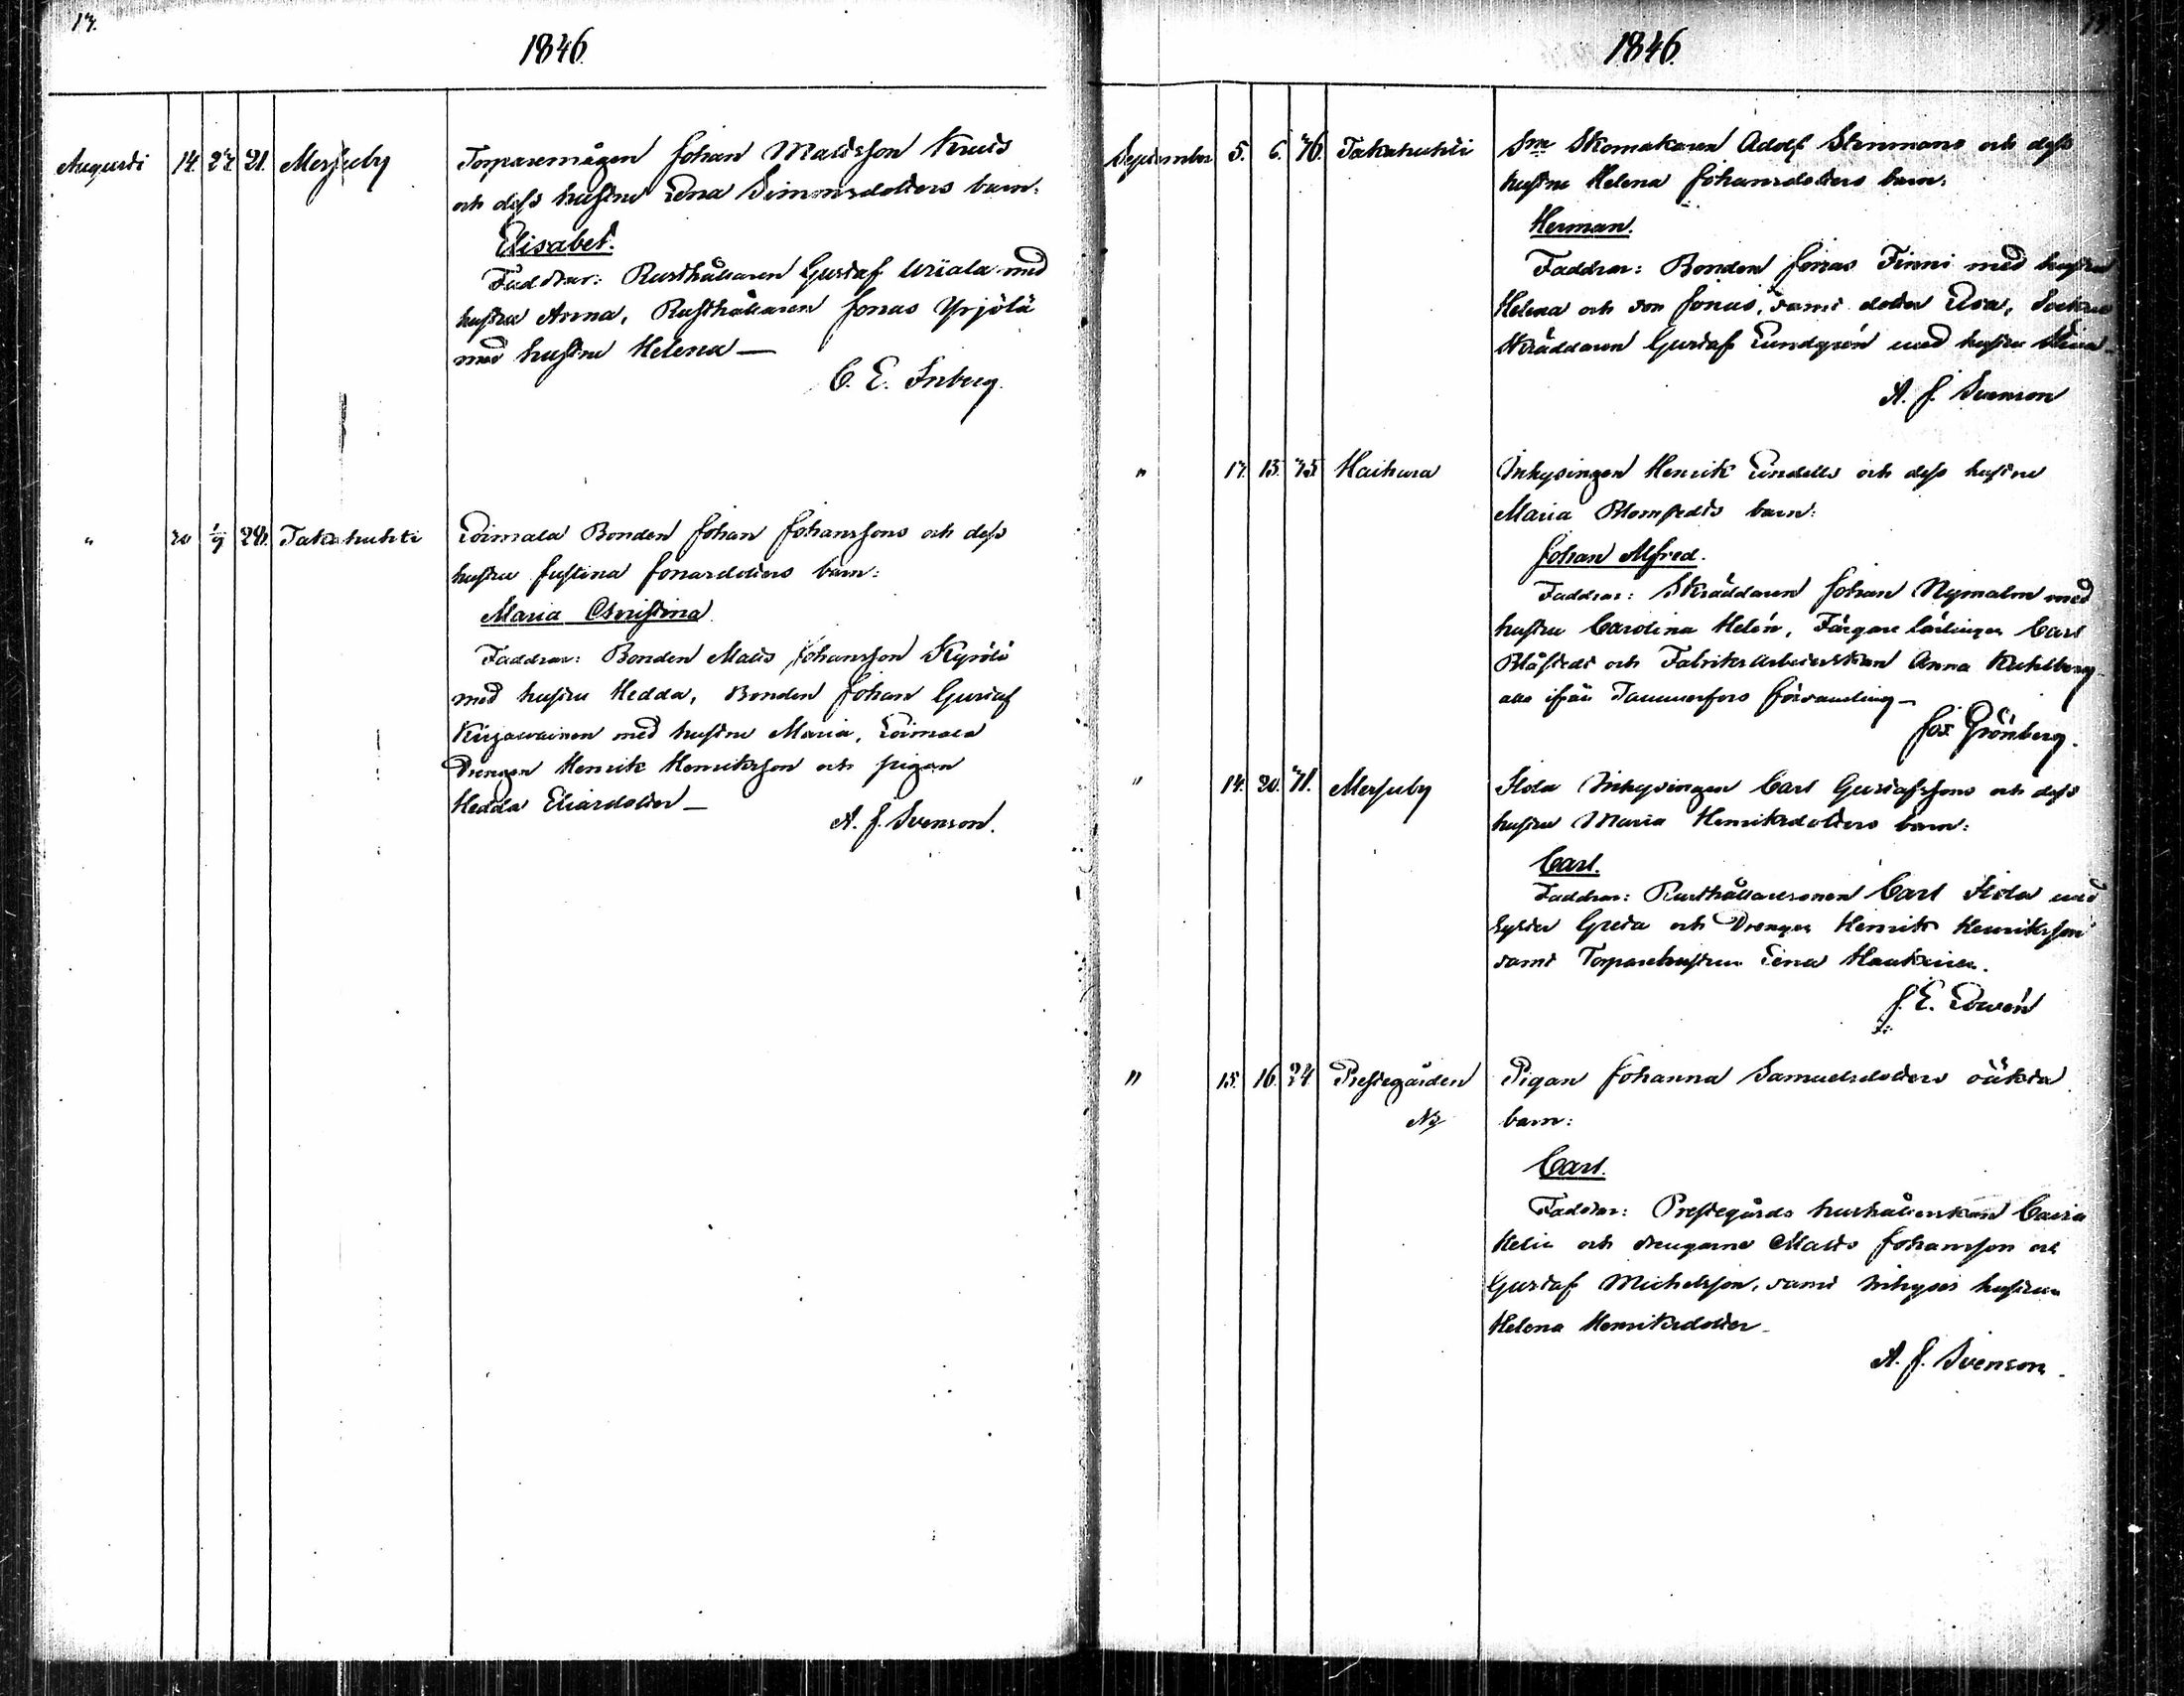 17.
1846.
Augusti 14. 27. 21. Mesjuby Torparemågen Johan Mattsson Knuts
och dess hustru Lena Simonsdotters barn:
Elisabet.
Faddrar: Rusthållaren Gustaf Uriala med
hustru Anna, Rusthållaren Jonas Yrjölä
med hustru Helena —
C. E. Inberg.
" 20 1/9 24. Takahuhti Loimala Bonden Johan Johanssons och dess
hustru Justina Jonasdotters barn:
Maria Christina
Faddrar: Bonden Matts Johansson Kyrölä
med hustru Hedda, Bonden Johan Gustaf
Kirjawainen med hustru Maria, Loimala
Drengen Henrik Henriksson och pigan
Hedda Eliasdotter —
A. J. Svenson.
1846.
September 5. 6. 76. Takahuhti Snn Skomakaren Adolf Stenmans och dess
hustru Helena Johansdotters barn:
Herman.
Faddrar: Bonden Jonas Finni med hustru
Helena och son Jonas, samt dotter Eva, Sockne
Skräddaren Gustaf Lundgrén med hustru
A. J. Svenson
" 17. 13. 75 Haihara Inhysingen Henrik Lindells och dess hustru
Maria Blomstedts barn:
Johan Alfred.
Faddrar: Skräddaren Johan Nymalm med
hustru Carolina Helén, Färgare lärlingen Carl
Blåfield och Fabriksarbeterskan Anna Kuhlberg
alla ifrån Tammerfors församling —
Jos. Grönberg.
" 14. 20. 71. Mesjuby Itola Inhysingen Carl Gustafssons och dess
hustru Maria Henriksdotters barn:
Carl.
Faddrar: Rusthållaresonen Carl Itola med
syster Greta och Drengen Henrik Henriksson
samt Torparehustrun Lena
J. E. Lowén
" 15. 16. 24. Prestegården Pigan Johanna Samuelsdotters oäkta
barn:
Carl.
Faddrar: Prestegårds hushållerskan Caisa
Helin och drengarne Matts Johansson och
Gustaf Michelsson, samt Inhyses hustrun
Helena Henriksdotter —
A. J. Svenson.